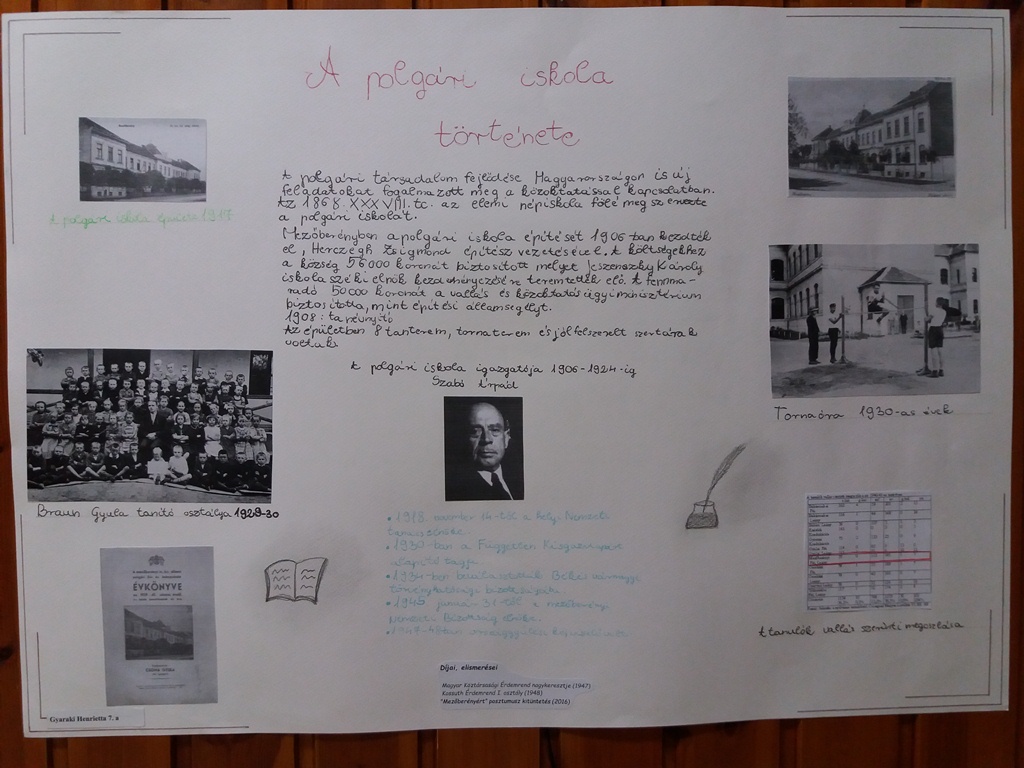 A polgári iskola
története
A polgári társadalom fejlődése Magyarországon is új
feladatokat fogalmazott meg a közoktatással kapcsolatban.
Az 1868. XXXVIII. tc. az elemi népiskola fölé megszervezte
a polgári iskolát.
Mezőberényben a polgári iskola építését 1906-ban kezdték
el, Herczegh Zsigmond építész vezetésével. A költségekhez
a község 56000 koronát biztosított melyet Jeszenszky Károly
iskolaszéki elnök kezdeményezésére teremtettek elő. A fennma-
radó 50000 koronát a vallás és közoktatásügyi minisztérium
biztosította, mint építési államsegélyt.
1908: tanévnyitó
Az épületben 8 tanterem, tornaterem és jól felszerelt szertárak
voltak
A polgári iskola igazgatója 1906-1924-ig
Szabó Árpád
• 1918. november 14-től a helyi Nemzeti
• 1930-ban a Független Kisgazdapárt
alapító tagja
• 1934-ben Békés vármegye
törvényhatósági bizottságába
• 1945 január 31-től a mezőberényi
Nemzeti Bizottság elnöke
• 1947-48-ban országgyűlési képviselő
Díjai, elismerései
Magyar Köztársasági Érdemrend nagykeresztje (1947)
Kossuth Érdemrend I. osztály (1948)
"Mezőberényért" posztumusz kitüntetés (2016)
A polgári iskola épülete 1917
Braun Gyula tanító osztálya 1929-30
ÉVKÖNYVE
Gyaraki Henrietta 7. a
Tornaóra 1930-as évek
A tanulók vallás szerinti megoszlása